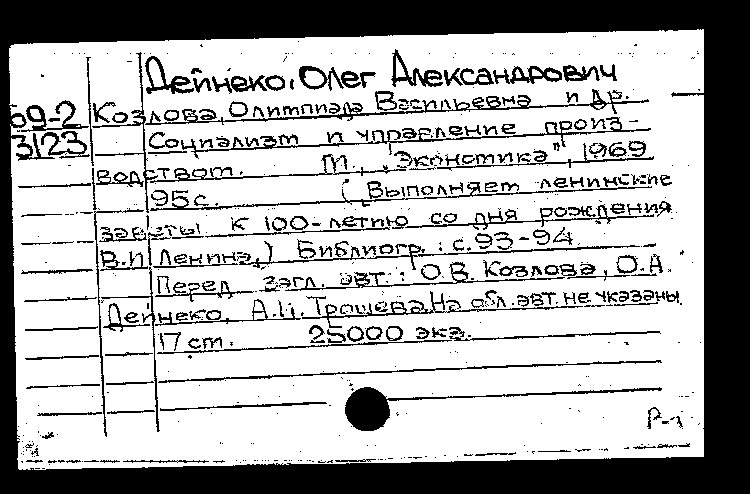 Дейнеко, Олег Александрович
69-2 Козлова, Олимпиада Васильевна и др.
3123 Социализм и управление произ-
водством. М., "Экономика", 1969
95 с. (Выполняем ленинские
заветы К 100-летию со дня рождения
В.И Ленина.) Библиогр.: с. 93-94.
Перед загл. авт.: О.В. Козлова, О.А.
Дейнеко, А.И. Трошева. На обл. авт. не указаны.
17 cm. 25000 экз.